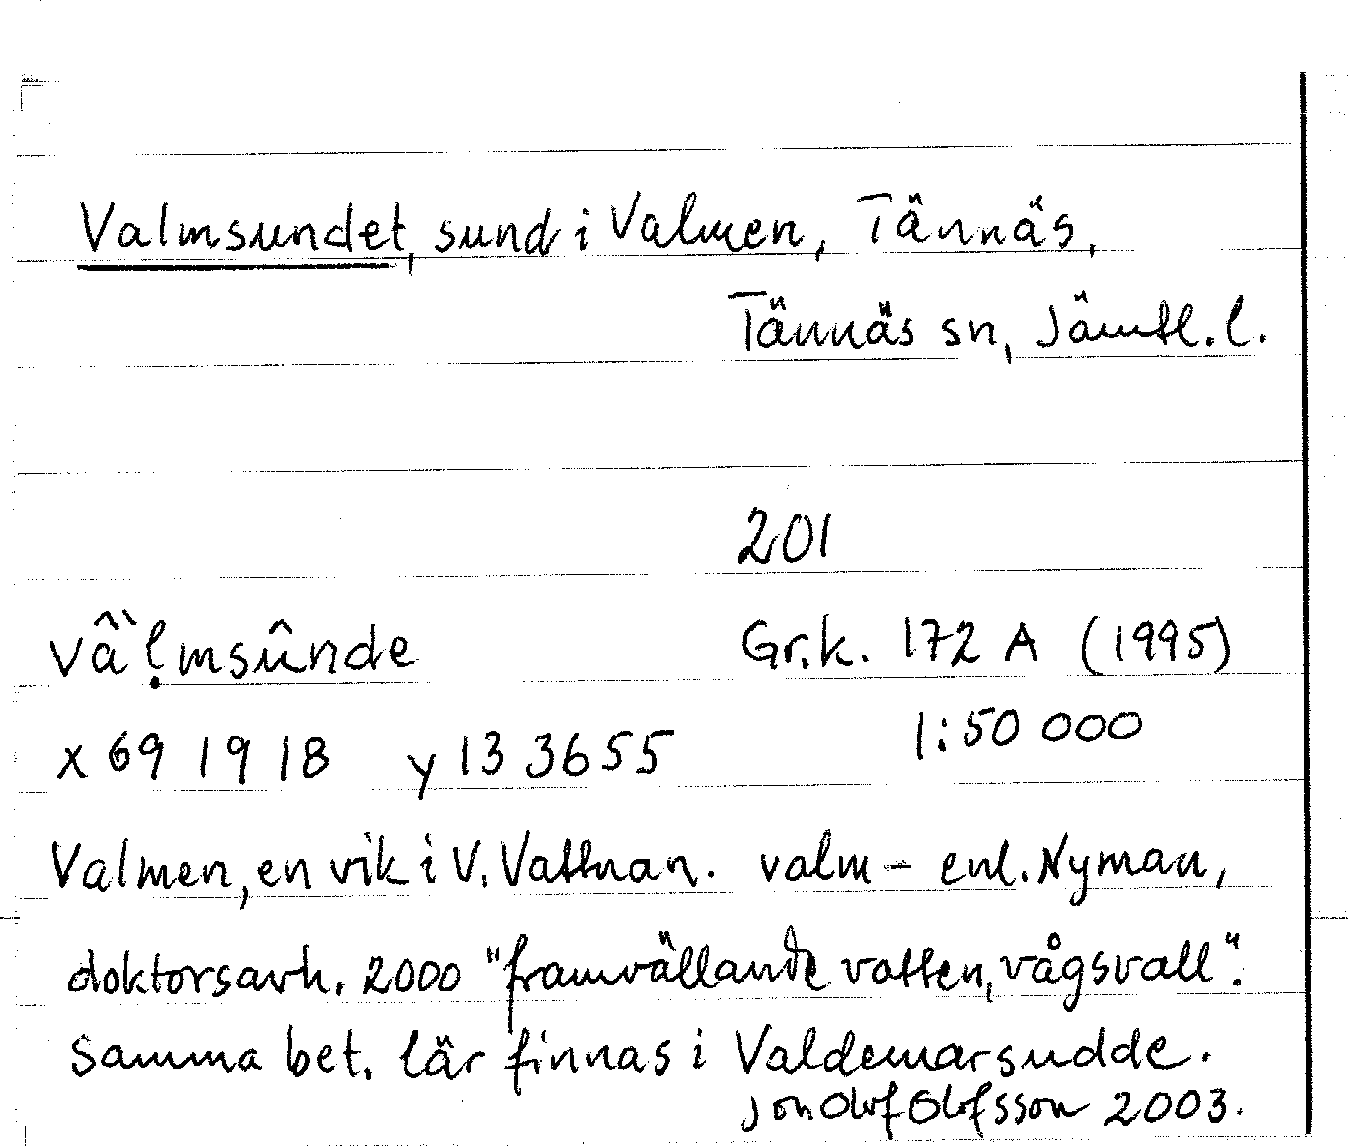 Valmsundet, sund i Valmen, Tännäs,
Tännäs sn, Jämtl. l.
201
vầḷmsûnde Gr.k. 172 A (1995)
x 69 19 18 y 13 36 55 1:50 000
Valmen, en vik i V. Vattnan. valm- enl. Nyman,
doktorsavh. 2000 "framvällande vatten, vågsvall".
Samma bet. lär finnas i Valdemarsudde.
Jon Olof Olofsson 2003.